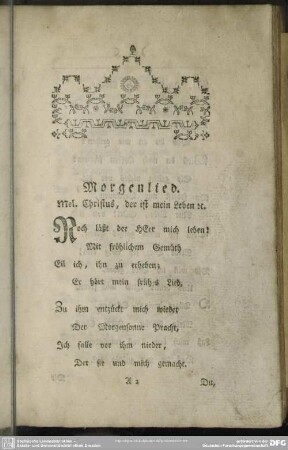 Morgenlied.
Mel. Christus, der ist mein Leben ꝛc.
Noch läßt der HErr mich leben!
Mit fröhlichem Gemüth
Eil ich, ihn zu erheben;
Er hört mein frühes Lied.
Zu ihm entzückt mich wieder
Der Morgensonne Pracht,
Ich falle vor ihm nieder,
Der sie und mich gemacht.
A 2
Du,
DFG